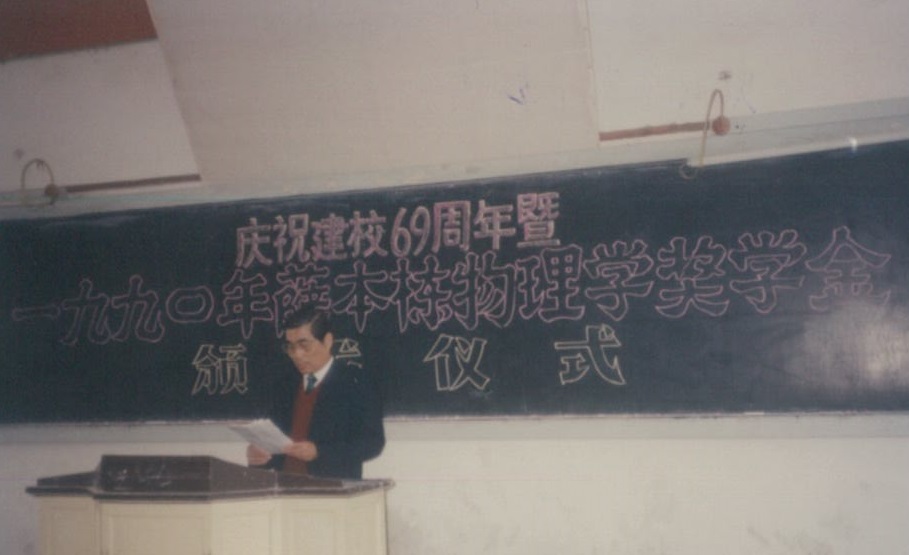 庆祝建校69周年暨
一九九〇年萨本栋物理学奖学金
颁 仪式